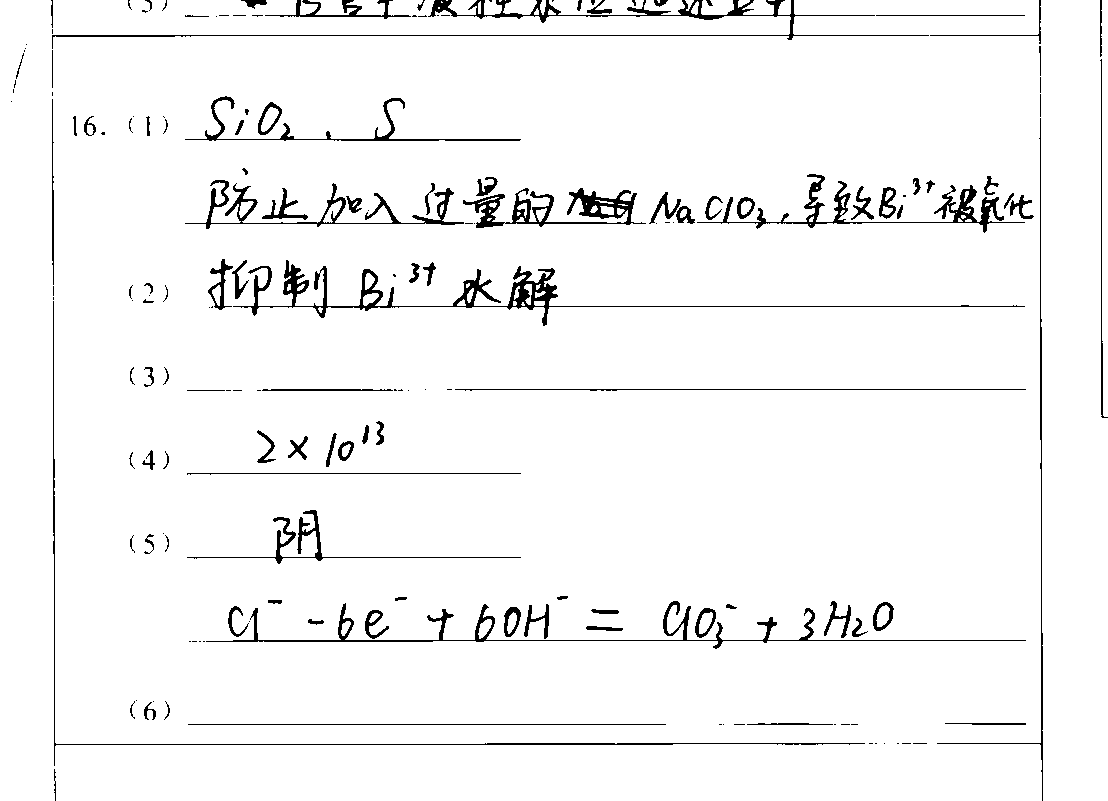 (5)
16. (1) SiO₂、S
防止加入过量的 NaClO₃，导致Bi³⁺被氧化
(2) 抑制 Bi³⁺ 水解
(3)
(4) 2×10¹³
(5) 阴
Cl⁻ -6e⁻ + 6OH⁻ = ClO₃⁻ + 3H₂O
(6)